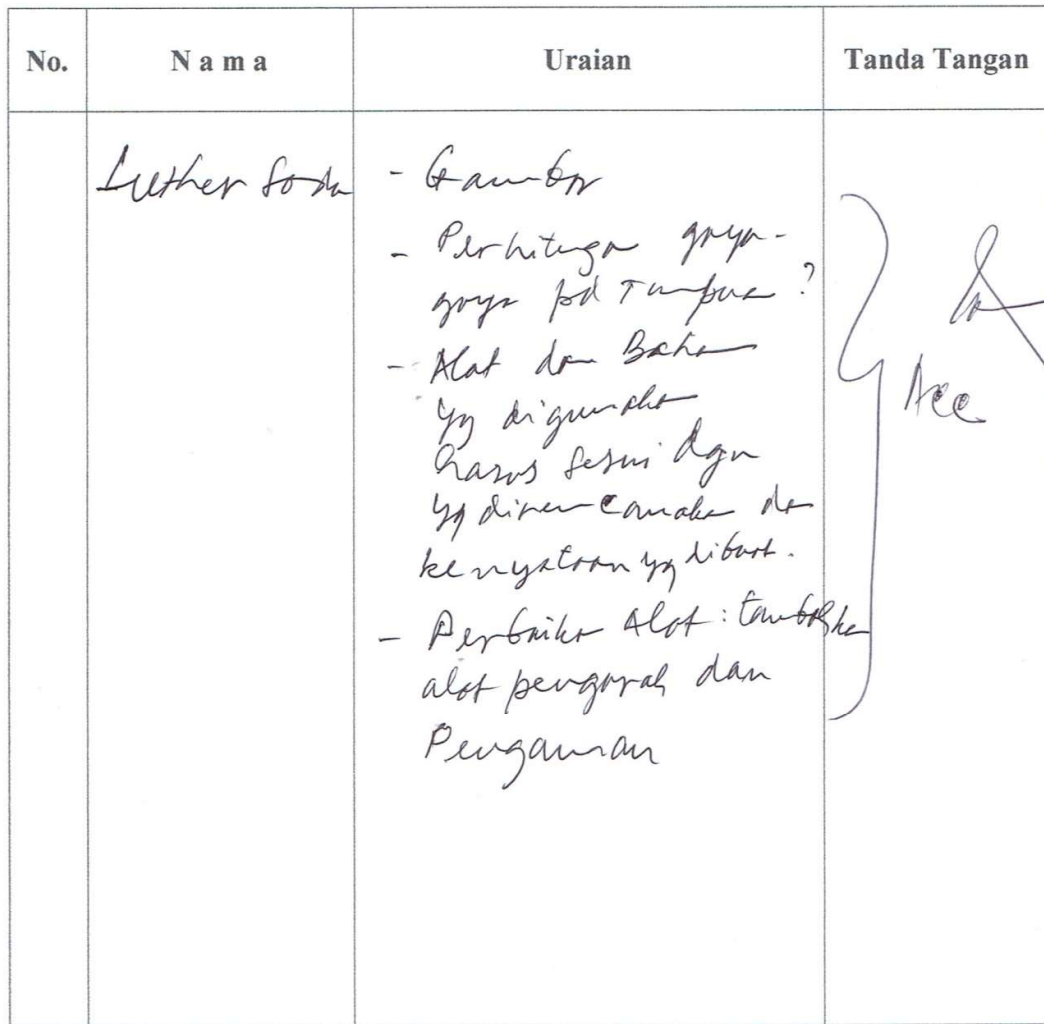 No.
N a m a
Uraian
Tanda Tangan
Luther Sonda
- Gambar
- Perhitungan gaya-
gaya pd Tumpuan ?
- Alat dan Bahan
yg digunakan
harus sesuai dgn
yg direncanakan dan
kenyataan yg dibuat.
- Perbaikan Alat : tambahkan
alat pengarah dan
Pengaman
Acc